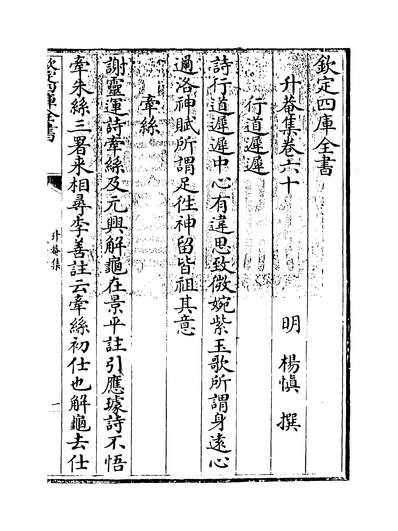 欽定四庫全書
升菴集卷六十
明 楊慎 撰
行道遲遲
詩行道遲遲中心有違思致微婉紫玉歌所謂身遠心
邇洛神賦所謂足往神留皆祖其意
牽絲
謝靈運詩牽絲及元興解龜在景平註引應璩詩不悟
牽朱絲三署來相尋李善註云牽絲初仕也解龜去仕
欽定四庫全書
升菴集
一